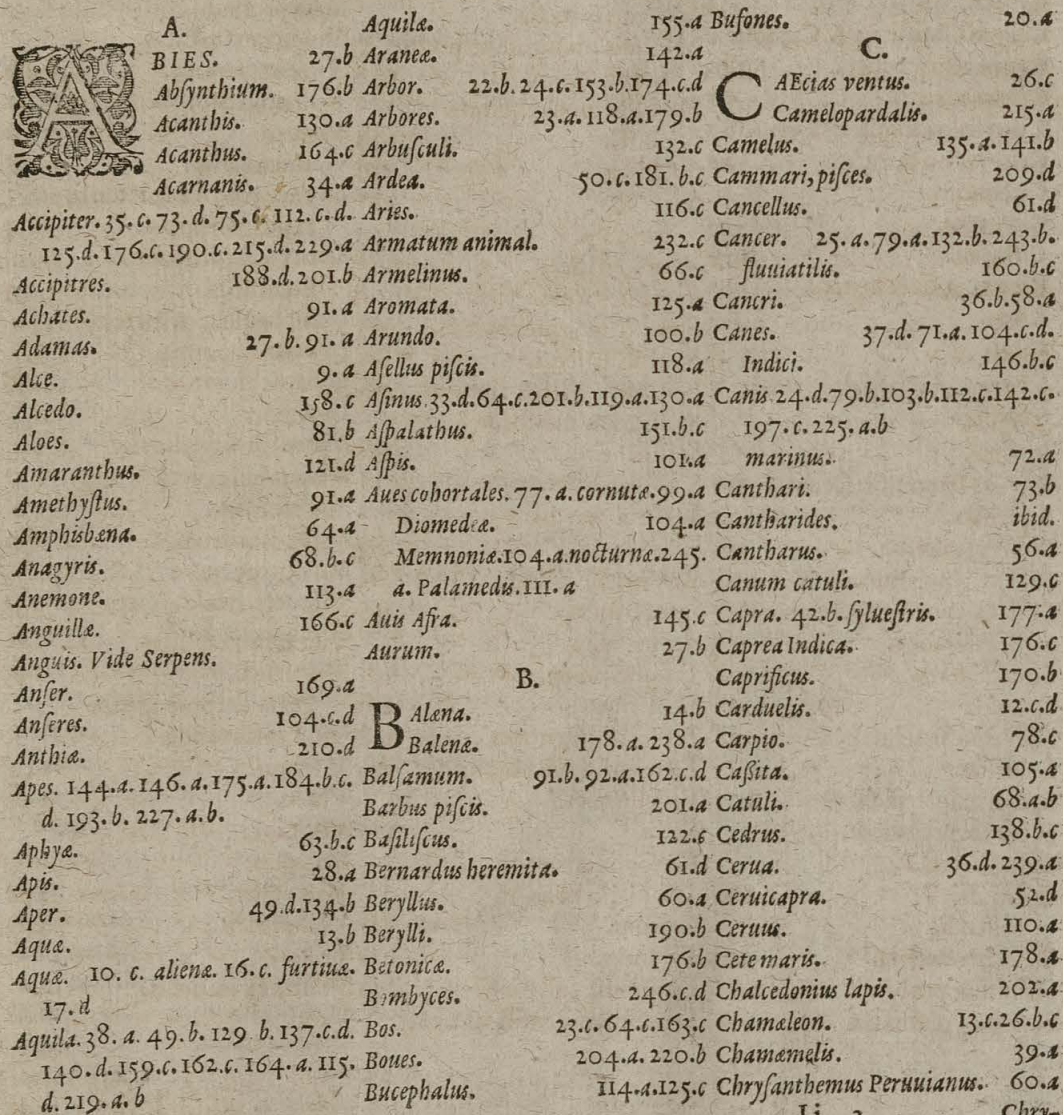 A.
ABIES. 27.b
Abſynthium. 176.b
Acanthis. 130.a
Acanthus. 164.c
Acarnanis. 34.a
Accipiter. 35.c. 73.d. 75.c. 112.c.d.
125.d. 176.c. 190.c. 215.d. 229.a
Accipitres. 188.d. 201.b
Achates. 91.a
Adamas. 27.b. 91.a
Alce. 9.a
Alcedo. 158.c
Aloes. 81.b
Amaranthus. 121.d
Amethyſtus. 91.a
Amphisbæna. 64.a
Anagyris. 68.b.c
Anemone. 113.a
Anguillæ. 166.c
Anguis. Vide Serpens.
Anſer. 169.a
Anſeres. 104.c.d
Anthiæ. 210.d
Apes. 144.a. 146.a. 175.a. 184.b.c.
d. 193.b. 227.a.b.
Aphyæ. 63.b.c
Apis. 28.a
Aper. 49.d. 134.b
Aquæ. 13.b
Aquæ. 10.c. alienæ. 16.c. furtiuæ.
17.d
Aquila. 38.a. 49.b. 129 b. 137.c.d.
140.d. 159.c. 162.c. 164.a. 115.
d. 219.a.b
Aquilæ. 155.a
Araneæ. 142.a
Arbor. 22.b. 24.c. 153.b. 174.c.d
Arbores. 23.a. 118.a. 179.b
Arbuſculi. 132.c
Ardea. 50.c. 181.b.c
Aries. 116.c
Armatum animal. 232.c
Armelinus. 66.c
Aromata. 125.a
Arundo. 100.b
Aſellus piſcis. 118.a
Aſinus. 33.d. 64.c. 201.b. 119.a. 130.a
Aſpalathus. 151.b.c
Aſpis. 101.a
Aues cohortales. 77.a. cornutæ. 99.a
Diomedeæ. 104.a
Memnoniæ. 104.a. nocturnæ. 245.
a. Palamedis. 111.a
Auis Afra. 145.c
Aurum. 27.b
B.
Balæna. 14.b
Balenæ. 178.a. 238.a
Balſamum. 91.b. 92.a. 162.c.d
Barbus piſcis. 201.a
Baſiliſcus. 122.c
Bernardus heremita. 61.d
Beryllus. 60.a
Berylli. 190.b
Betonicæ. 176.b
Bombyces. 246.c.d
Bos. 23.c. 64.c. 163.c
Boues. 204.a. 220.b
Bucephalus. 114.a. 125.c
Bufones. 20.a
C.
CAEcias ventus. 26.c
Camelopardalis. 215.a
Camelus. 135.a. 141.b
Cammari, piſces. 209.d
Cancellus. 61.d
Cancer. 25.a. 79.a. 132.b. 243.b.
fluuiatilis. 160.b.c
Cancri. 36.b. 58.a
Canes. 37.d. 71.a. 104.c.d.
Indici. 146.b.c
Canis 24.d. 79.b. 103.b. 112.c. 142.c.
197.c. 225.a.b
marinus. 72.a
Canthari. 73.b
Cantharides. ibid.
Cantharus. 56.a
Canum catuli. 129.c
Capra. 42.b. ſylueſtris. 177.a
Caprea Indica. 176.c
Caprificus. 170.b
Carduelis. 12.c.d
Carpio. 78.c
Caſſita. 105.a
Catuli. 68.a.b
Cedrus. 138.b.c
Cerua. 36.d. 239.a
Ceruicapra. 52.d
Ceruus. 110.a
Cete maris. 178.a
Chalcedonius lapis. 202.a
Chamæleon. 13.c. 26.b.c
Chamæmelis. 39.a
Chryſanthemus Peruuianus. 60.a